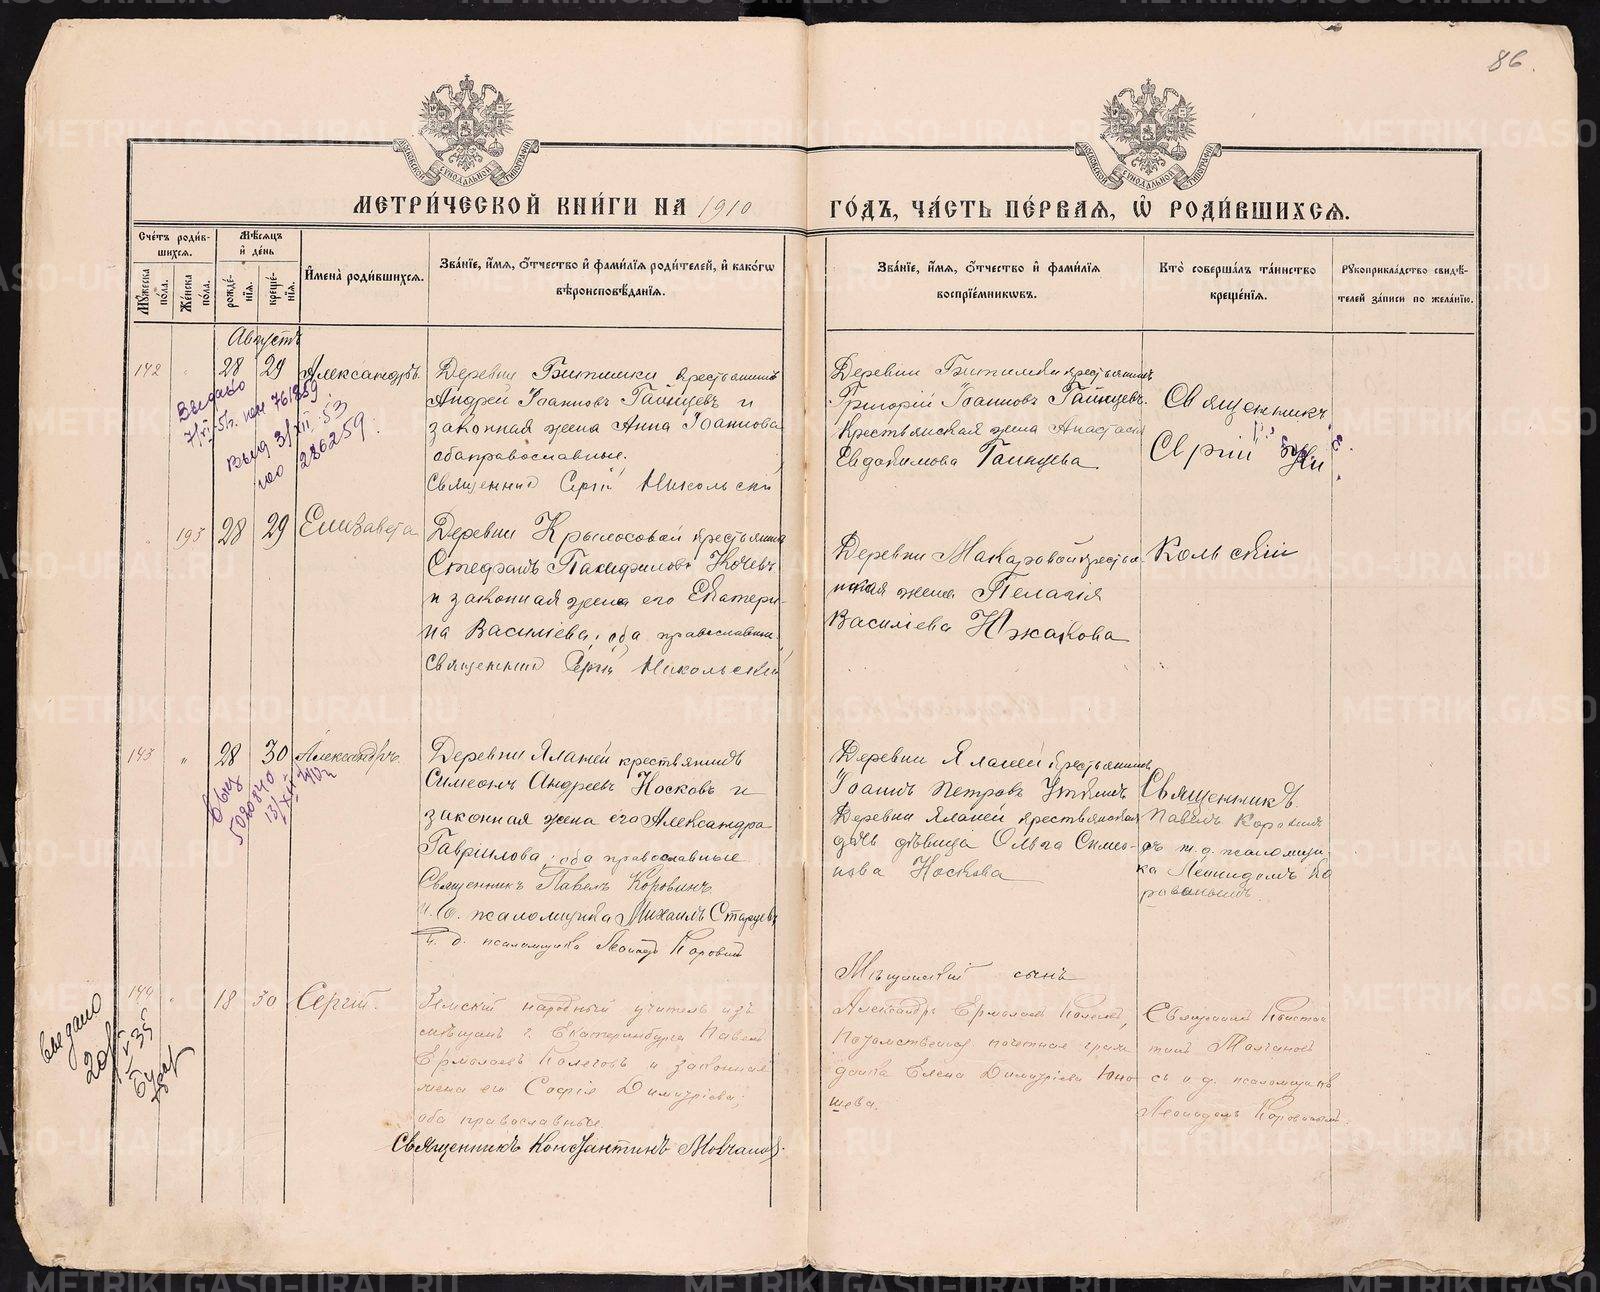 86.
МЕТРИ́ЧЕСКОЙ КНИ́ГИ НА 1910 ГО́ДЪ, ЧА́СТЬ ПЕ́РВАЯ, Ѡ РОДИ́ВШИХСЯ.
Сче́тъ роди́в-
шихся.
Мꙋ́жеска по́ла.
Же́нска по́ла.
Мѣ́сяцъ
и де́нь
рожде́-
нїя.
креще́-
нїя.
И҆мена̀ роди́вшихся.
Зва́нїе, и҆́мя, о҆́тчество и҆ фами́лїя роди́телей, и҆ како́гѡ
вѣроисповѣ́данїя.
Зва́нїе, и҆́мя, о҆́тчество и҆ фами́лїя
воспрїе́мникѡвъ.
Кто̀ соверша́лъ та́инство
креще́нїя.
Рꙋкоприкла́дство свидѣ́-
телей за́писи по жела́нїю.
Августъ
142 " 28 29 Александръ.
Деревни Битимки крестьянинъ
Андрей Іоанновъ Гаинцевъ и
законная жена Анна Іоаннова
оба православные.
Священникъ Сергій Никольскій
Деревни Битимки крестьянинъ
Григорій Іоанновъ Гаинцевъ.
Крестьянская жена Анастасія
Евдокимова Гаинцева
Священникъ
Сергій Ни
Выдано
286259.
193 28 29 Елизавета
Деревни Крылосовой крестьянинъ
Стефанъ Памфиловъ Кочевъ
и законная жена его Екатери-
на Васильева, оба православные.
Священникъ Сергій Никольскій
Деревни Макаровой крестья-
нская жена Пелагія
Васильева Южакова
кольскій
143 " 28 30 Александръ.
Выд
5020840
Деревни Яланей крестьянинъ
Симеонъ Андреевъ Носковъ и
законная жена его Александра
Гавриилова, оба православные
Священникъ Павелъ Коровинъ
и. д. псаломщика Михаилъ Старцевъ
и. д. псаломщика Леонидъ Коровинъ
Деревни Яланей крестьянинъ
Іоаннъ Петровъ Уткинъ
Деревни Яланей крестьянская
дочь дѣвица Ольга Симео-
нова Носкова
Священникъ
Павелъ Коровинъ
съ и. д. псаломщи-
ка Леонидомъ Ко
ровинымъ.
144 " 18 30 Сергій.
Выдано
Земскій народный учитель изъ
мѣщанъ г. Екатеринбурга Павелъ
Ермолаевъ Колеговъ и законная
жена его Софія Димитріева;
оба православные.
Священникъ Константинъ Молчановъ.
Мѣщанскій сынъ
Александръ Ермолаевъ Колеговъ,
Потомственная почетная граж
данка Елена Димитріева Юно
шева.
Священникъ Констан
тинъ Молчановъ
съ и. д. псаломщика
Леонидомъ Коровинымъ.
METRIKI.GASO-URAL.RU